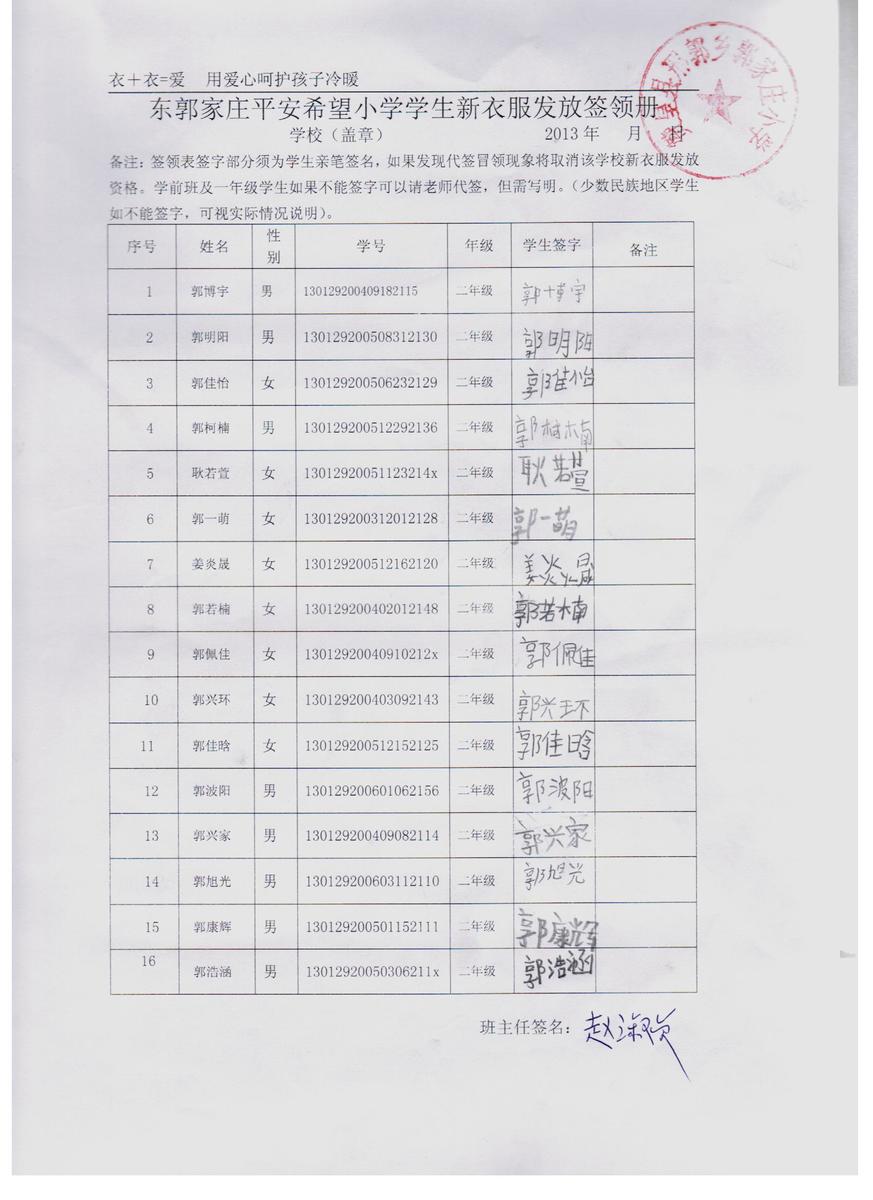 衣＋衣=爱 用爱心呵护孩子冷暖
东郭家庄平安希望小学学生新衣服发放签领册
学校（盖章） 2013 年 月 日
备注：签领表签字部分须为学生亲笔签名，如果发现代签冒领现象将取消该学校新衣服发放
资格。学前班及一年级学生如果不能签字可以请老师代签，但需写明。（少数民族地区学生
如不能签字，可视实际情况说明）。
序号 姓名 性别 学号 年级 学生签字 备注
1 郭博宇 男 130129200409182115 二年级 郭博宇
2 郭明阳 男 130129200508312130 二年级 郭明阳
3 郭佳怡 女 130129200506232129 二年级 郭佳怡
4 郭柯楠 男 130129200512292136 二年级 郭柯楠
5 耿若萱 女 13012920051123214x 二年级 耿若萱
6 郭一萌 女 130129200312012128 二年级 郭一萌
7 姜炎晟 女 130129200512162120 二年级 姜炎晟
8 郭若楠 女 130129200402012148 二年级 郭若楠
9 郭佩佳 女 13012920040910212x 二年级 郭佩佳
10 郭兴环 女 130129200403092143 二年级 郭兴环
11 郭佳晗 女 130129200512152125 二年级 郭佳晗
12 郭波阳 男 130129200601062156 二年级 郭波阳
13 郭兴家 男 130129200409082114 二年级 郭兴家
14 郭旭光 男 130129200603112110 二年级 郭旭光
15 郭康辉 男 130129200501152111 二年级 郭康辉
16 郭浩涵 男 13012920050306211x 二年级 郭浩涵
班主任签名：赵